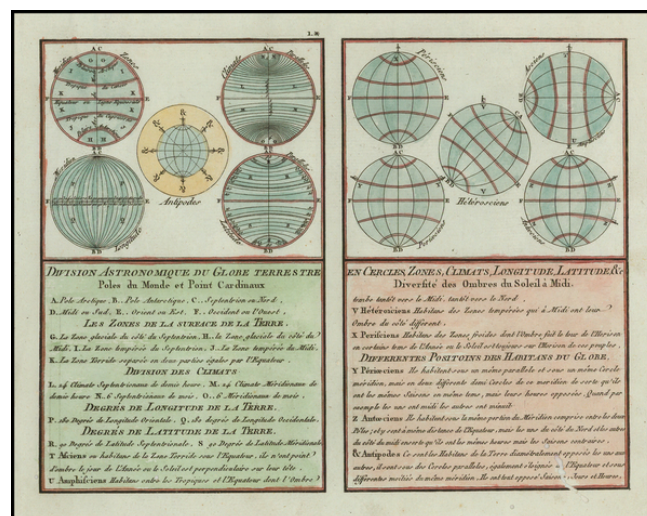 Périsciens
Antipodes
Hétérosciens
DIVISION ASTRONOMIQUE DU GLOBE TERRESTRE
Poles du Monde et Point Cardinaux
A. Pole Arctique, B. Pole Antarctique, C. Septentrion ou Nord,
D. Midi ou Sud, E. Orient ou Est, F. Occident ou l'Ouest.
LES ZONES DE LA SURFACE DE LA TERRE.
G. La Zone glaciale du côté du Septentrion, H. la Zone glaciale du côté du
Midi, I. La Zone tempérée du Septentrion, J. la Zone tempérée du Midi,
K. La Zone Torride separée en deux parties égales par l'Equateur.
DIVISION DES CLIMATS.
L. 24 Climats Septentrionaux de demie heure, M. 24 Climats Méridionaux de
demie heure N. 6 Septentrionaux de mois, O. 6 Méridionaux de mois.
DEGRÉS DE LONGITUDE DE LA TERRE.
P. 180 Degrés de Longitude Orientale, Q. 180 degrés de Longitude Occidentale.
DEGRÉS DE LATITUDE DE LA TERRE.
R. 90 Degrés de Latitude Septentrionale, S 90 Degrés de Latitude Méridionale
T Asciens ou habitans de la Zone Torride sous l'Equateur, ils n'ont point
d'ombre le jour de l'Année ou le Soleil est perpendiculaire sur leur tête.
U Amphisciens Habitans entre les Tropiques et l'Equateur dont l'Ombre
EN CERCLES, ZONES, CLIMATS, LONGITUDE, LATITUDE &c
Diversité des Ombres du Soleil à Midi.
tombe tantôt vers le Midi, tantôt vers le Nord.
V Hétérosciens Habitans des Zones tempérées qui à Midi ont leur
Ombre du côté différent.
X Perisciens Habitans des Zones froides dont l'Ombre fait le tour de l'Horison
en certains tems de l'Année ou le Soleil est toujours sur l'Horison de ces peuples.
DIFFERENTES POSITOINS DES HABITANS DU GLOBE,
Y Périoeciens Ils habitent sous un même parallele et sous un même Cercle
méridien, mais en deux différents demi Cercles de ce méridien de sorte qu'ils
ont les mêmes Saisons en même tems, mais leurs heures opposées. Quand par
exemple les uns ont midi les autres ont minuit
Z Antoeciens Ils habitent sous la même portion du Méridien comprise entre les deux
Pôles; et y sont à même distance de l'Equateur, mais les uns du côté du Nord et les autres
du côté du midi ensorte qu'ils ont les mêmes heures mais les Saisons contraires.
& Antipodes Ce sont les Habitans de la Terre diamétralement opposés les uns aux
autres, il sont sous des Cercles paralleles, également éloignés de l'Equateur et sous
différentes moitiés du même méridien. Ils ont tout opposé Saisons, Jours et Heures.